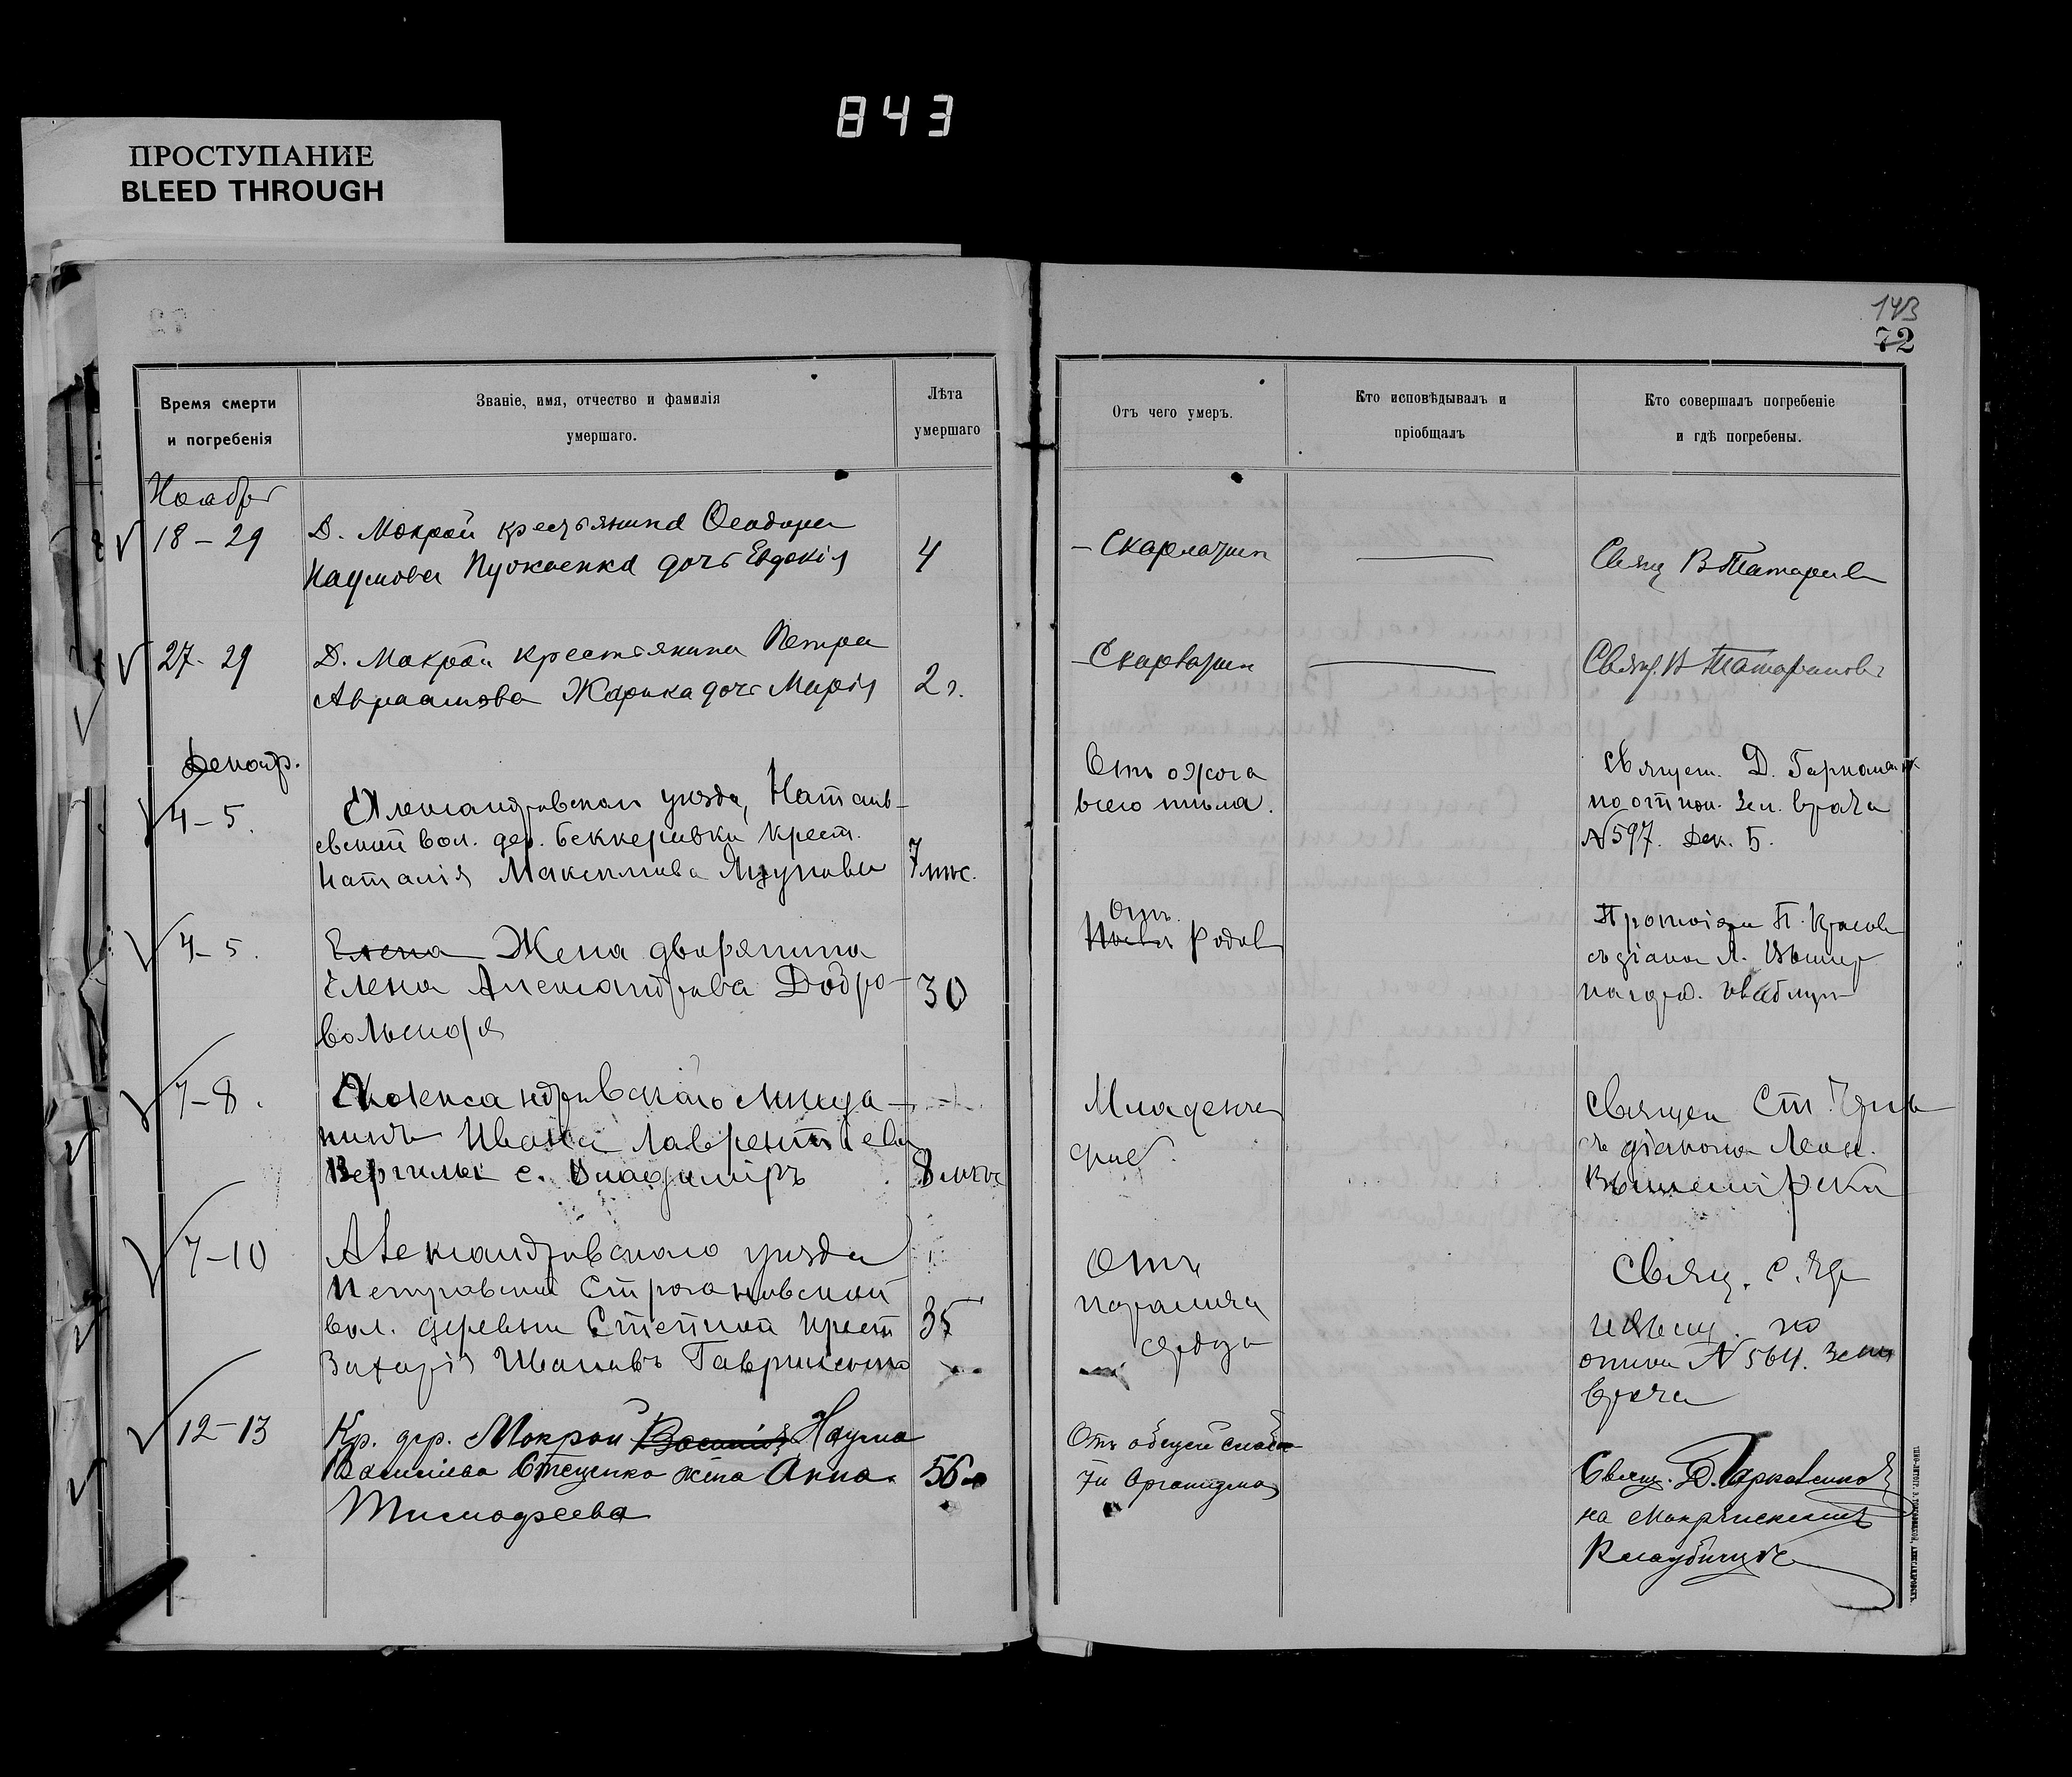 843
ПРОСТУПАНИЕ
BLEED THROUGH
143
72
Время смерти
и погребенія
Званіе, имя, отчество и фамилія
умершаго.
Лѣта
умершаго
Отъ чего умеръ.
Кто исповѣдывалъ и
пріобщалъ
Кто совершалъ погребеніе
и гдѣ погребены.
Ноябрь
18 – 29
Д. Мокрой крестьянина Ѳеодора
Наумова дочь Евдокія
4
– Скарлатин
Свящ В Татаринов
27 - 29
Д. Мокрой крестьянина Петра
Авраамова Жарика дочь Марія
2 г.
– Скарлатин
Свящ. В Татаринов
Декабр.
4 – 5.
Александровскаго уѣзда, Наталь-
евской вол. дер. Беккеровки крест.
Наталія Максимова
7 мѣс.
Отъ ожога
всего тѣла.
Священ. Д.
по отнош. Зем. врача
№ 597. Дек. 5.
4 – 5.
Елена Жена дворянина
Елена Александрова Добро-
вольская
30
Отъ
родов
Протоіерей П.
съ діакон Л.
на гор. кладбищ
7 – 8.
Александровскаго мѣща-
нина Ивана Лаврентіева
с. Владиміръ
8 мѣс
Младенче
Священ Ст.
съ діаконом Леон.
7 – 10
Александровскаго уѣзда
Строгановской
вол. деревни Степной крест
Захарія Ивановъ Гавриленко
35
Отъ
паралича
сердца
Свящ. С.
по
отнош № 564. Земс
врача
12 – 13
Кр. дер. Мокрой Василія Наума
Василіева Стеценко жена Анна
Тимофеева
56
Отъ общей слабо-
ти Организма
Свящ. Д.
на Мокрянскомъ
Кладбищѣ